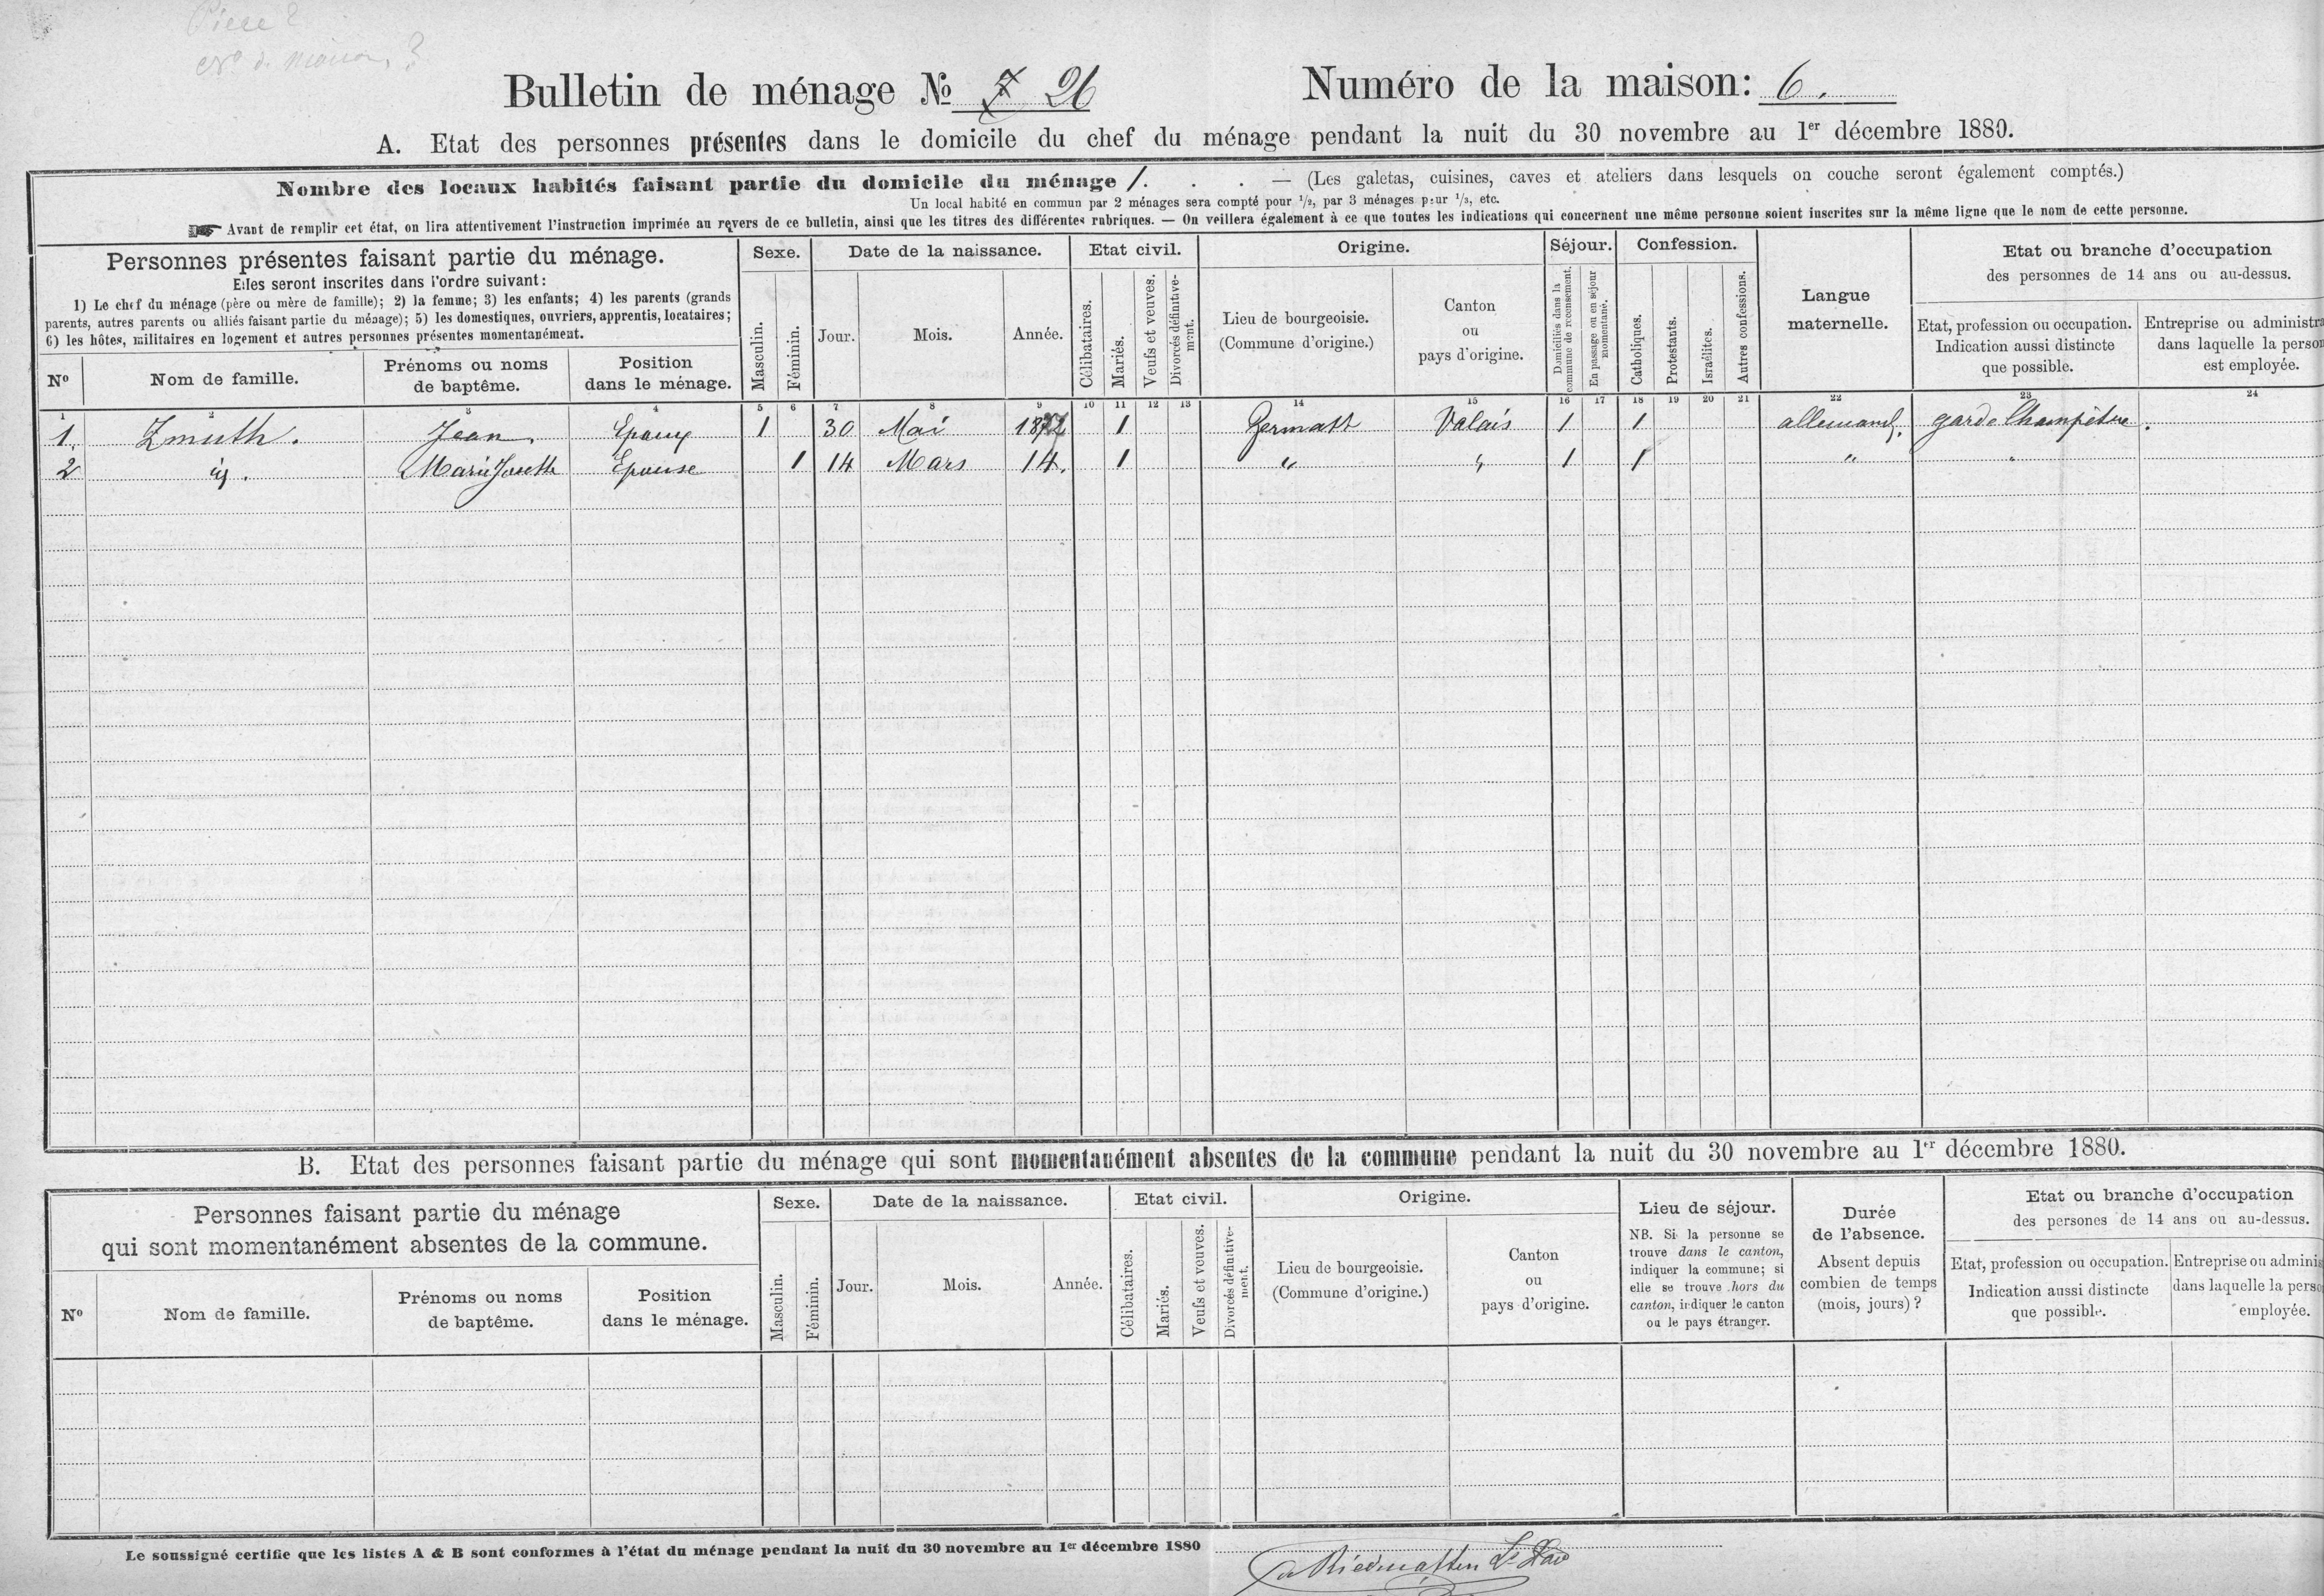 Piece ?
No de maison ?
Bulletin de ménage No 7 26
Numéro de la maison: 6.
A. Etat des personnes présentes dans le domicile du chef du ménage pendant la nuit du 30 novembre au 1er décembre 1880.
Nombre des locaux habités faisant partie du domicile du ménage 1. . . — (Les galetas, cuisines, caves et ateliers dans lesquels on couche seront également comptés.)
Un local habité en commun par 2 ménages sera compté pour 1/2, par 3 ménages pour 1/3, etc.
☞ Avant de remplir cet état, on lira attentivement l'instruction imprimée au revers de ce bulletin, ainsi que les titres des différentes rubriques. — On veillera également à ce que toutes les indications qui concernent une même personne soient inscrites sur la même ligne que le nom de cette personne.
Personnes présentes faisant partie du ménage.
Elles seront inscrites dans l'ordre suivant:
1) Le chef du ménage (père ou mère de famille); 2) la femme; 3) les enfants; 4) les parents (grands
parents, autres parents ou alliés faisant partie du ménage); 5) les domestiques, ouvriers, apprentis, locataires;
6) les hôtes, militaires en logement et autres personnes présentes momentanément.
No
Nom de famille.
Prénoms ou noms
de baptême.
Position
dans le ménage.
Sexe.
Masculin.
Féminin.
Date de la naissance.
Jour.
Mois.
Année.
Etat civil.
Célibataires.
Mariés.
Veufs et veuves.
Divorcés définitive-
ment.
Origine.
Lieu de bourgeoisie.
(Commune d'origine.)
Canton
ou
pays d'origine.
Séjour.
Domiciliés dans la
commune de recensement.
En passage ou en séjour
momentané.
Confession.
Catholiques.
Protestants.
Israélites.
Autres confessions.
Langue
maternelle.
Etat ou branche d'occupation
des personnes de 14 ans ou au-dessus.
Etat, profession ou occupation.
Indication aussi distincte
que possible.
Entreprise ou administra
dans laquelle la person
est employée.
1 2 3 4 5 6 7 8 9 10 11 12 13 14 15 16 17 18 19 20 21 22 23 24
1. Zmuth. Jean Epoux 1 30 Mai 1 Zermatt Valais 1 1 allemand. garde Champêtre.
2 id. Marie Josette Epouse 1 14 Mars 14. 1 " " 1 1 " "
B. Etat des personnes faisant partie du ménage qui sont momentanément absentes de la commune pendant la nuit du 30 novembre au 1er décembre 1880.
Personnes faisant partie du ménage
qui sont momentanément absentes de la commune.
No
Nom de famille.
Prénoms ou noms
de baptême.
Position
dans le ménage.
Sexe.
Masculin.
Féminin.
Date de la naissance.
Jour.
Mois.
Année.
Etat civil.
Célibataires.
Mariés.
Veufs et veuves.
Divorcés définitive-
ment.
Origine.
Lieu de bourgeoisie.
(Commune d'origine.)
Canton
ou
pays d'origine.
Lieu de séjour.
NB. Si la personne se
trouve dans le canton,
indiquer la commune; si
elle se trouve hors du
canton, indiquer le canton
ou le pays étranger.
Durée
de l'absence.
Absent depuis
combien de temps
(mois, jours)?
Etat ou branche d'occupation
des persones de 14 ans ou au-dessus.
Etat, profession ou occupation.
Indication aussi distincte
que possible.
Entreprise ou adminis
dans laquelle la perso
employée.
Le soussigné certifie que les listes A & B sont conformes à l'état du ménage pendant la nuit du 30 novembre au 1er décembre 1880
de Riedmatten